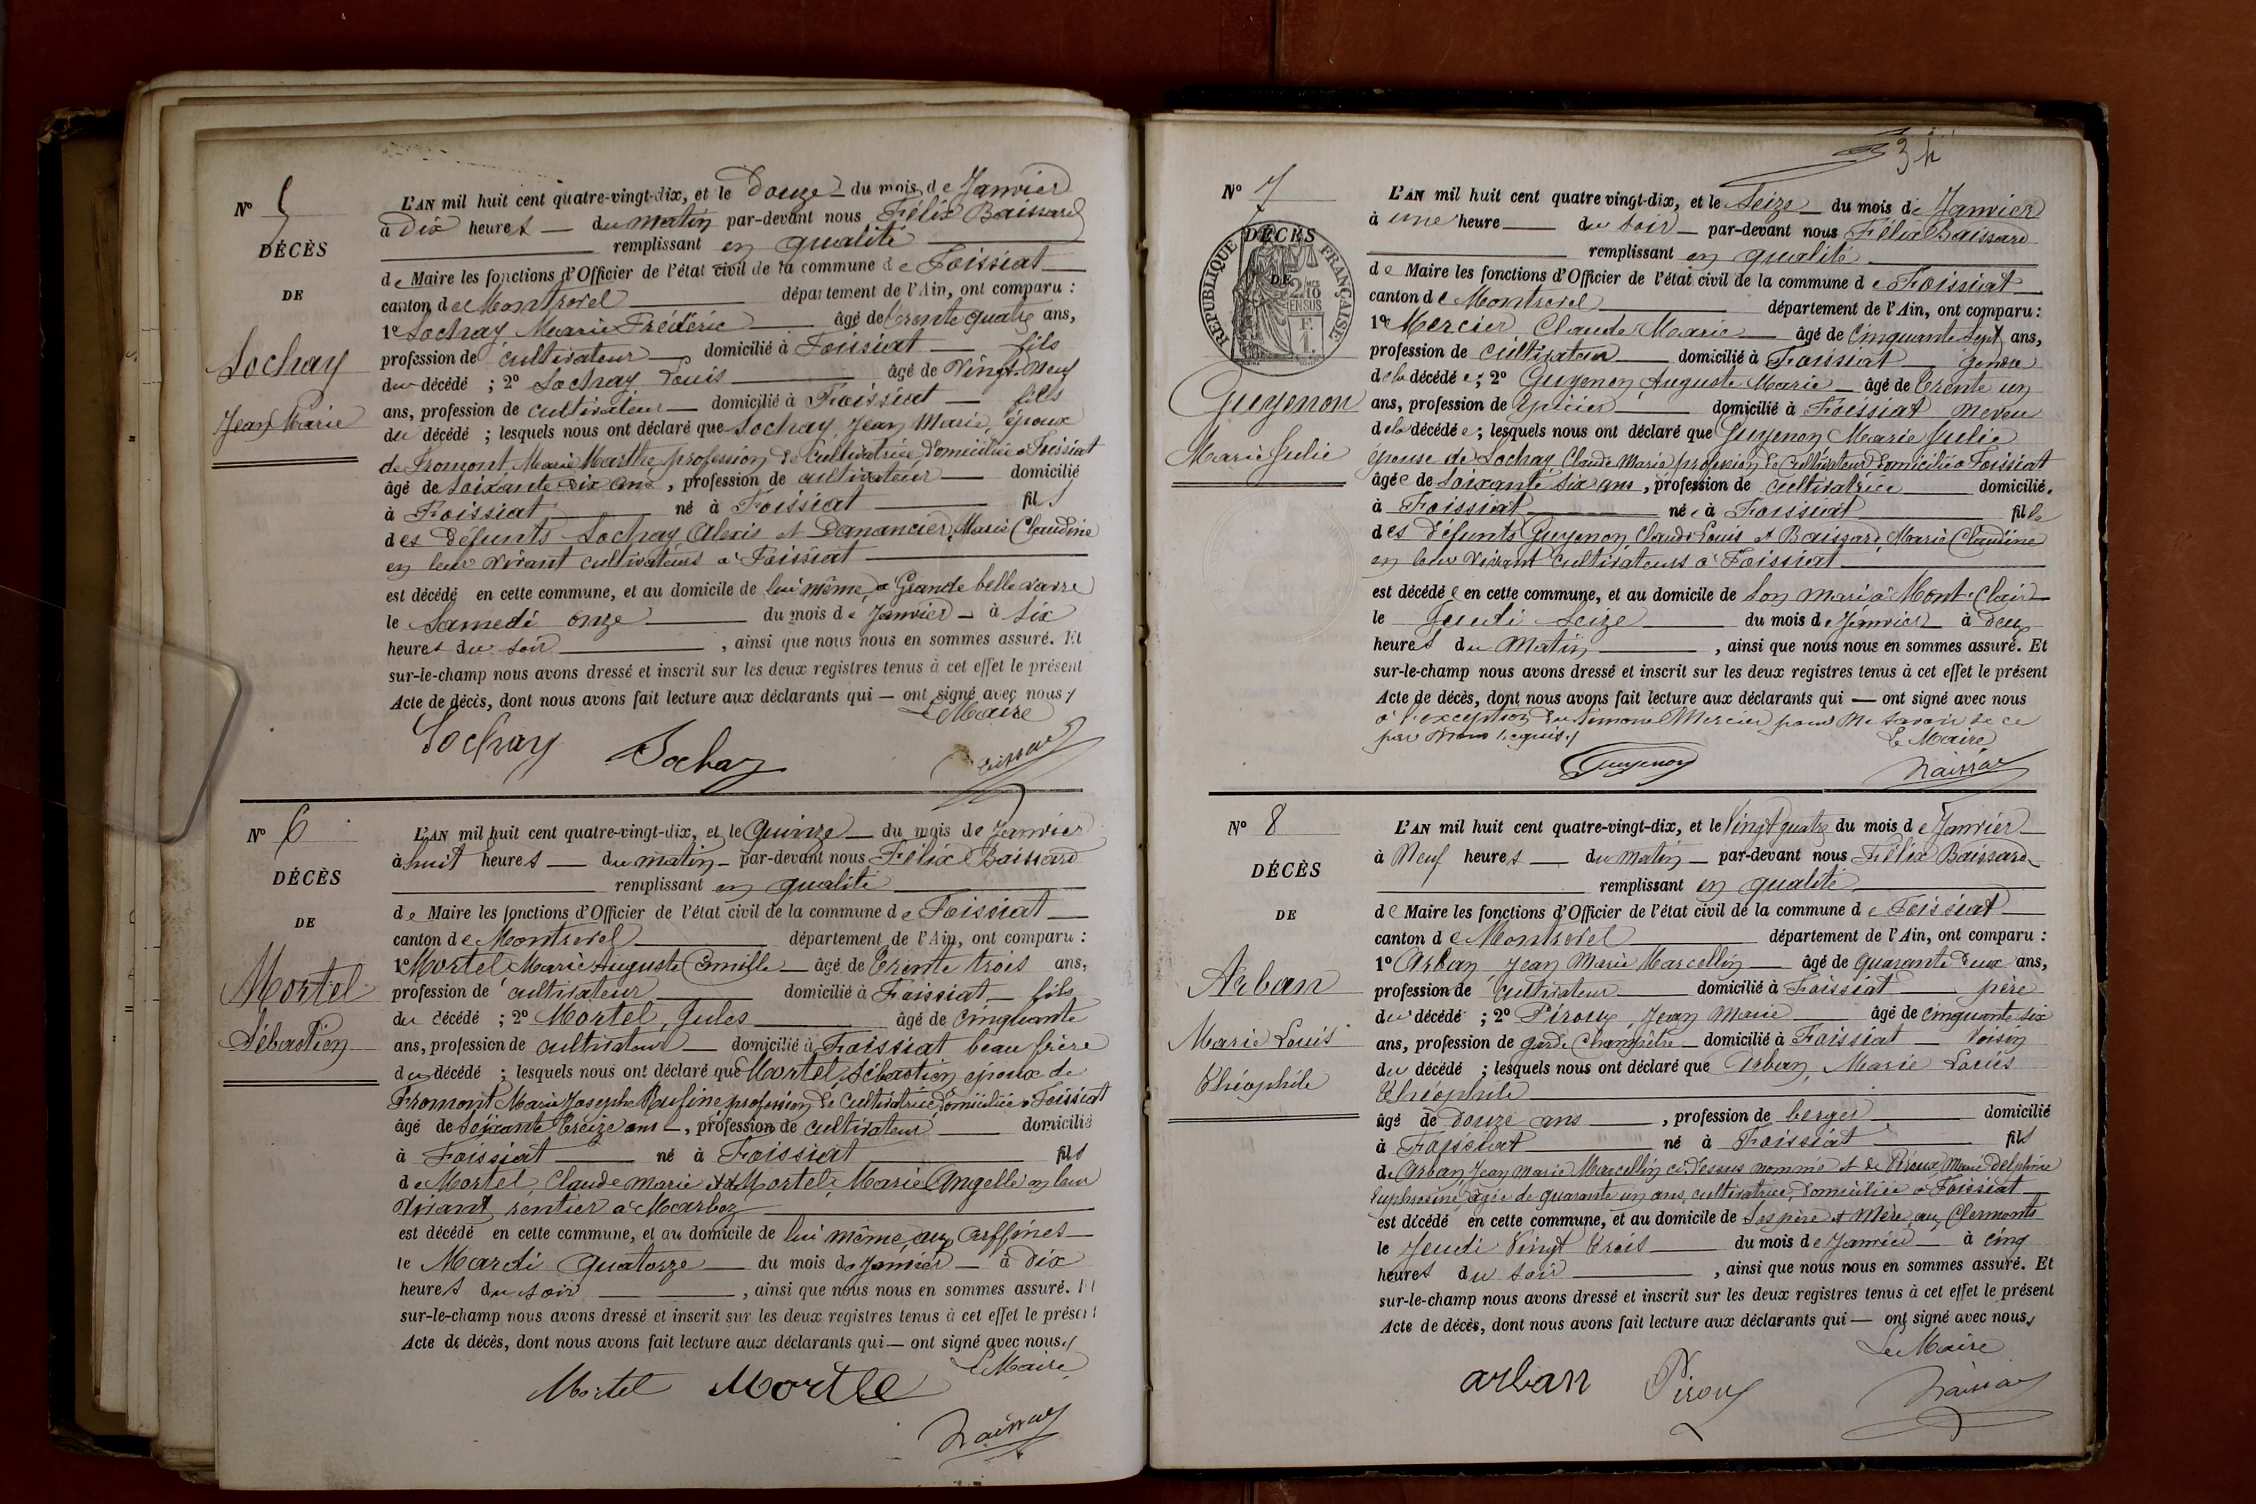 Nº 5
DÉCÈS
DE
Sochay
Jean Marie
L'AN mil huit cent quatre-vingt-dix, et le Douze du mois de Janvier
à Dix heures du matin par-devant nous Félix Baissard
remplissant en qualité
de Maire les fonctions d'Officier de l'état civil de la commune de Foissiat
canton de Montrevel département de l'Ain, ont comparu :
1º Sochay Marie Frédéric âgé de trente quatre ans,
profession de cultivateur domicilié à Foissiat fils
du décédé ; 2º Sochay Louis âgé de Vingt-Neuf
ans, profession de cultivateur domicilié à Foissiat fils
du décédé ; lesquels nous ont déclaré que Sochay Jean Marie, époux
de Fromont, Marie Marthe, profession de Cultivatrice, domiciliée à Foissiat
âgé de soixante dix ans, profession de cultivateur domicilié
à Foissiat né à Foissiat fils
des défunts Sochay Alexis et Danancier, Marie Claudine
en leur vivant cultivateurs à Foissiat
est décédé en cette commune, et au domicile de lui même, à Grande belle varre
le Samedi onze du mois de Janvier à six
heures du soir, ainsi que nous nous en sommes assuré. Et
sur-le-champ nous avons dressé et inscrit sur les deux registres tenus à cet effet le présent
Acte de décès, dont nous avons fait lecture aux déclarants qui — ont signé avec nous
Le Maire
Sochay Sochay Baissard
Nº 6
DÉCÈS
DE
Mortel
Sébastien
L'AN mil huit cent quatre-vingt-dix, et le Quinze du mois de Janvier
à huit heures du matin par-devant nous Félix Baissard
remplissant en qualité
de Maire les fonctions d'Officier de l'état civil de la commune de Foissiat
canton de Montrevel département de l'Ain, ont comparu :
1º Mortel Marie Auguste Camille âgé de trente trois ans,
profession de cultivateur domicilié à Foissiat fils
du décédé ; 2º Mortel, Jules âgé de Cinquante
ans, profession de cultivateur domicilié à Foissiat beau frère
du décédé ; lesquels nous ont déclaré que Mortel, Sébastien époux de
Fromont Marie Josephe Rufine profession de Cultivatrice, domiciliée à Foissiat
âgé de soixante treize ans, profession de cultivateur domicilié
à Foissiat né à Foissiat fils
de Mortel, Claude Marie et de Mortel, Marie Angelle en leur
vivant rentier à Marboz
est décédé en cette commune, et au domicile de lui même, aux
le Mardi quatorze du mois de Janvier à dix
heures du soir, ainsi que nous nous en sommes assuré. Et
sur-le-champ nous avons dressé et inscrit sur les deux registres tenus à cet effet le présent
Acte de décès, dont nous avons fait lecture aux déclarants qui — ont signé avec nous
Le Maire
Mortel Mortel
Baissard
34
Nº 7
DÉCÈS
DE
RÉPUBLIQUE FRANÇAISE
Guyenon
Marie Julie
L'AN mil huit cent quatre vingt-dix, et le Seize du mois de Janvier
à une heure du soir par-devant nous Félix Baissard
remplissant en qualité
de Maire les fonctions d'Officier de l'état civil de la commune de Foissiat
canton de Montrevel département de l'Ain, ont comparu :
1º Mercier Claude Marie âgé de Cinquante Sept ans,
profession de cultivateur domicilié à Foissiat Gendre
de la décédée ; 2º Guyenon, Auguste Marie âgé de trente un
ans, profession de épicier domicilié à Foissiat neveu
de la décédée ; lesquels nous ont déclaré que Guyenon Marie Julie
épouse de Sochay Claude Marie profession de Cultivateur domicilié à Foissiat
âgée de soixante six ans, profession de cultivatrice domicilié.
à Foissiat née à Foissiat fille
des défunts Guyenon Claude Louis et Baissard, Marie Claudine
en leur vivant cultivateurs à Foissiat
est décédée en cette commune, et au domicile de son mari à Mont-Clair
le Jeudi Seize du mois de Janvier à deux
heures du Matin, ainsi que nous nous en sommes assuré. Et
sur-le-champ nous avons dressé et inscrit sur les deux registres tenus à cet effet le présent
Acte de décès, dont nous avons fait lecture aux déclarants qui — ont signé avec nous
à l'exception du Mercier pour ne savoir de ce
par nous requis
Le Maire
Guyenon Baissard
Nº 8
DÉCÈS
DE
Arban
Marie Louis
Théophile
L'AN mil huit cent quatre-vingt-dix, et le Vingt quatre du mois de Janvier
à Neuf heures du matin par-devant nous Félix Baissard
remplissant en qualité
de Maire les fonctions d'Officier de l'état civil de la commune de Foissiat
canton de Montrevel département de l'Ain, ont comparu :
1º Arban Jean Marie Marcellin âgé de quarante deux ans,
profession de cultivateur domicilié à Foissiat père
du décédé ; 2º Piroux, Jean Marie âgé de cinquante six
ans, profession de garde Champêtre domicilié à Foissiat Voisin
du décédé ; lesquels nous ont déclaré que Arban, Marie Louis
Théophile
âgé de douze ans, profession de berger domicilié
à Foissiat né à Foissiat fils
de Arban, Jean Marie Marcellin ci-dessus nommé et de Piroux, Marie Delphine
Euphrosine, âgée de quarante un ans, cultivatrice, domiciliée à Foissiat
est décédé en cette commune, et au domicile de ses père et mère, aux Clermonts
le Jeudi Vingt trois du mois de Janvier à cinq
heures du soir, ainsi que nous nous en sommes assuré. Et
sur-le-champ nous avons dressé et inscrit sur les deux registres tenus à cet effet le présent
Acte de décès, dont nous avons fait lecture aux déclarants qui — ont signé avec nous
Le Maire
arban Piroux Baissard